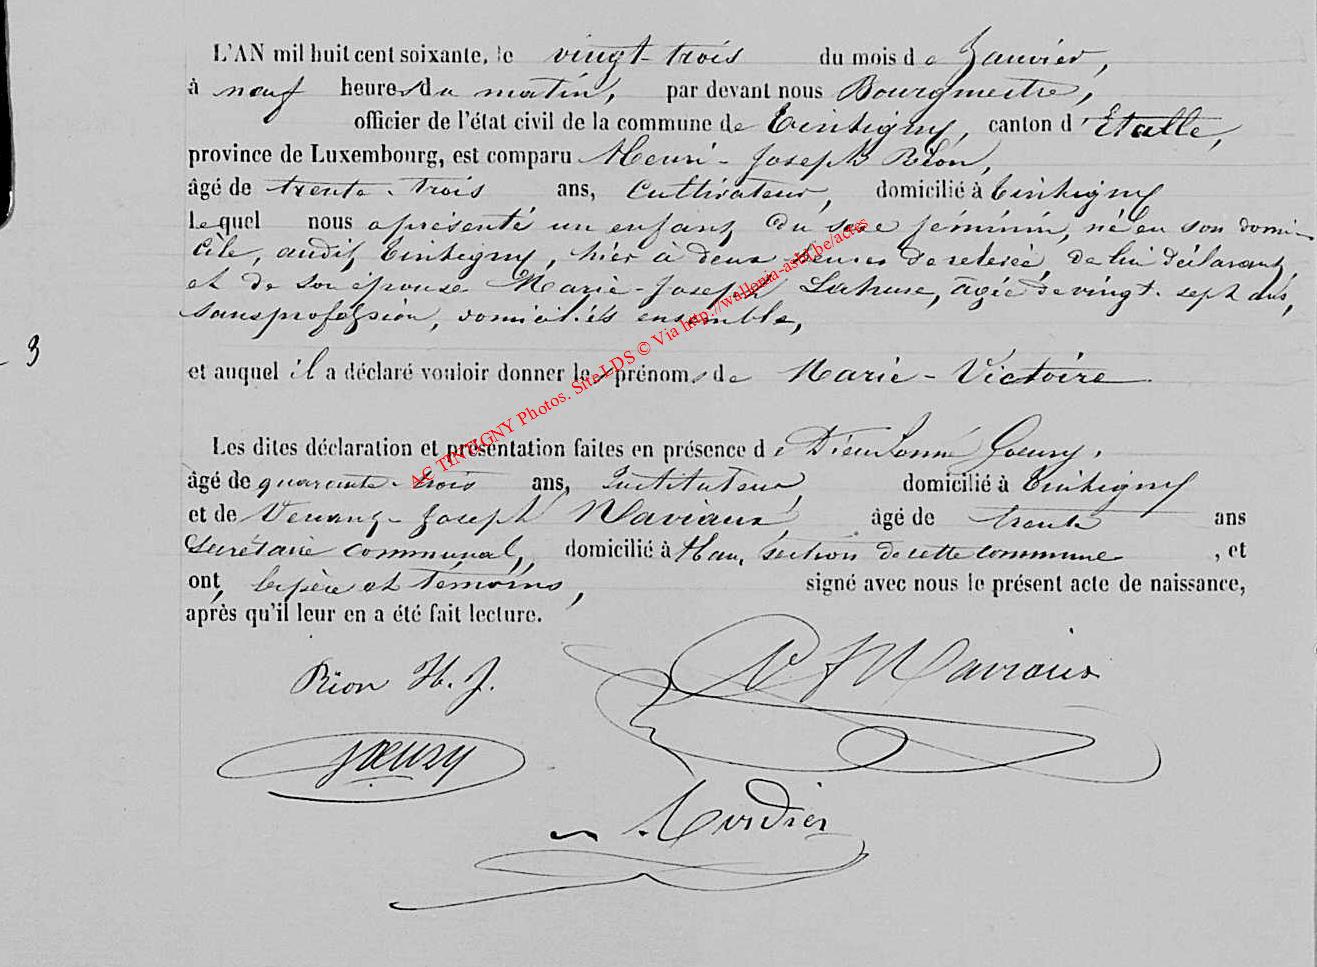 L'AN mil huit cent soixante, le vingt-trois du mois de Janvier,
à neuf heures du matin, par devant nous Bourgmestre,
officier de l'état civil de la commune de Tintigny, canton d'Etalle,
province de Luxembourg, est comparu Henri-Joseph Rion,
âgé de trente-trois ans, Cultivateur, domicilié à Tintigny
lequel nous a présenté un enfant du sexe féminin, né en son domi-
cile, audit Tintigny, hier à deux heures de relevée, de lui déclarant,
et de son épouse Marie-Joseph Lahure, âgée de vingt-sept ans,
sans profession, domiciliés ensemble,
3
et auquel il a déclaré vouloir donner les prénoms de Marie-Victoire
Les dites déclaration et présentation faites en présence de Dieudonné Goeury,
âgé de quarante-trois ans, Instituteur, domicilié à Tintigny
et de Joseph Maviaux, âgé de trente ans
Secrétaire communal, domicilié à Han, section de cette commune, et
ont, le père et témoins, signé avec nous le présent acte de naissance,
après qu'il leur en a été fait lecture.
Rion H. J.
V J Maviaux
Goeury
AC TINTIGNY Photos. Site LDS © Via http://wallonia-asbl.be/actes